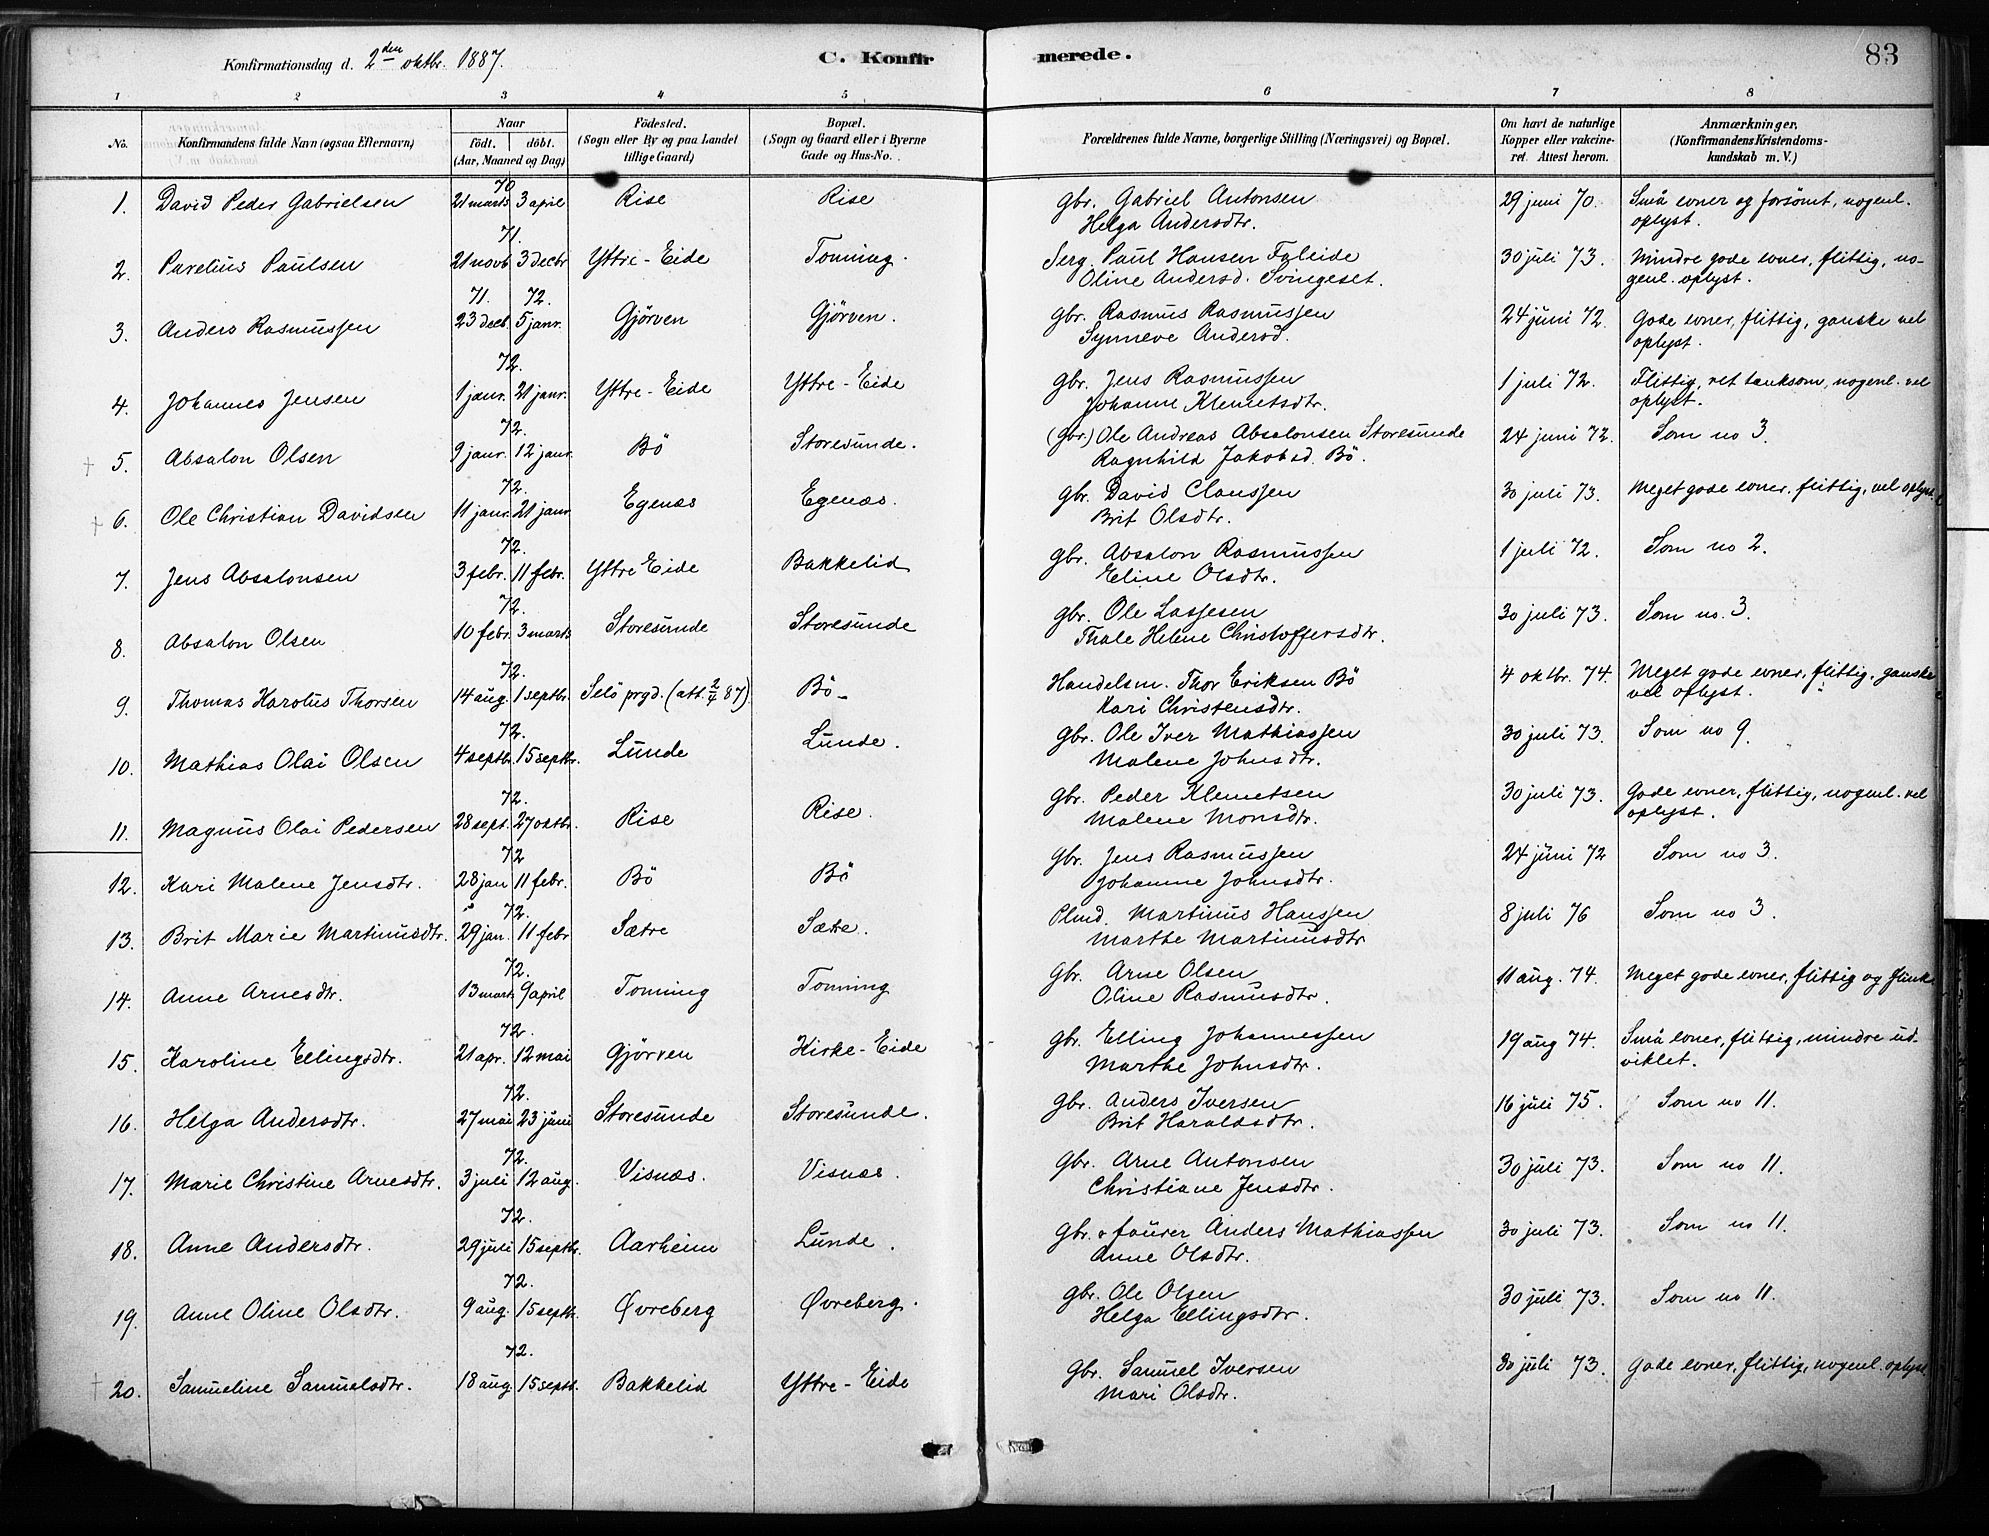 Konfirmationsdag d. 2den oktbr. 1887.
C. Konfirmerede.
83
1 2 3 4 5 6 7 8
No. Konfirmandens fulde Navn (ogsaa Efternavn) Naar födt. döbt. (Aar, Maaned og Dag) Födested. (Sogn eller By og paa Landet tillige Gaard) Bopæl. (Sogn og Gaard eller i Byerne Gade og Hus-No. Forældrenes fulde Navne, borgerlige Stilling (Næringsvei) og Bopæl. Om havt de naturlige Kopper eller vakcineret. Attest herom. Anmærkninger, (Konfirmandens Kristendomskundskab m. V.)
1. David Peder Gabrielsen 70 21 marts 3 april Rise Rise Gbr. Gabriel Antonsen 29 juni 70. Små evner og forsömt, nogenl.
Helga Andersdtr. oplyst.
2. Parelius Paulsen 71. 21 novb 3 decbr Yttre-Eide Tonning. Serg. Paul Hansen Faleide 30 juli 73. Mindre gode evner, flittig, no-
Oline Andersd. Svingeset. genl. oplyst.
3. Anders Rasmussen 71. 23 decb. 72. 5 janr. Gjörven Gjörven. Gbr. Rasmus Rasmussen 24 juni 72. Gode evner, flittig, ganske vel
Synneve Andersd. oplyst.
4. Johannes Jensen 72. 1 janr. 21 janr. Yttre-Eide Yttre-Eide Gbr. Jens Rasmussen 1 juli 72. Flittig, ret tænksom, nogenl. vel
Johanne Klemetsdtr. oplyst.
† 5. Absalon Olsen 72. 9 janr. 12 janr. Bö Storesunde. (Gbr.) Ole Andreas Absalonsen Storesunde 24 juni 72. Som no 3.
Ragnhild Jakobsd. Bö.
† 6. Ole Christian Davidsen 72. 11 janr. 21 janr. Egenæs Egenæs. Gbr. David Claussen 30 juli 73. Meget gode evner, flittig, vel oplyst
Brit Olsdtr.
7. Jens Absalonsen 72. 3 febr. 11 febr. Yttre Eide Bakkelid Gbr. Absalon Rasmussen 1 juli 72. Som no 2.
Eline Olsdtr.
8. Absalon Olsen 72. 10 febr. 3 marts Storesunde Storesunde Gbr. Ole Lassesen 30 juli 73. Som no. 3.
Thale Helene Christoffersdtr.
9. Thomas Karolus Thorsen 72. 14 aug. 1 septbr. Selö prgd. (att. 2/4 87) Bö- Handelsm. Thor Eriksen Bö 4 oktbr. 74. Meget gode evner, flittig, ganske
Kari Christensdtr. vel oplyst.
10. Mathias Olai Olsen 72. 4 septbr. 15 septbr. Lunde Lunde. Gbr. Ole Iver Mathiassen 30 juli 73. Som no 9.
Malene Johnsdtr.
11. Magnus Olai Pedersen 72. 28 sept. 27 oktbr. Rise Rise. Gbr. Peder Klemetsen 30 juli 73. Gode evner, flittig, nogenl. vel
Malene Monsdtr. oplyst.
12. Kari Malene Jensdtr. 72 28 jan 11 febr. Bö Bö Gbr. Jens Rasmussen 24 juni 72 Som no 3.
Johanne Johnsdtr.
13. Brit Marie Martinusdtr. 72. 29 jan. 11 febr Sætre Sætre. Plmd. Martinus Hanssen 8 juli 76 Som no 3.
Marthe Martinusdtr
14. Anne Arnesdtr. 72. 13 mart. 9 april Tonning Tonning Gbr. Arne Olsen 11 aug. 74. Meget gode evner, flittig og flink
Oline Rasmusdtr.
15. Karoline Ellingsdtr. 72. 21 apr. 12 mai Gjörven Kirke-Eide Gbr. Elling Johannessen 19 aug 74. Små evner, flittig, mindre ud-
Marthe Johnsdtr. viklet.
16. Helga Andersdtr. 72. 27 mai 23 juni Storesunde Storesunde. Gbr. Anders Iversen 16 juli 75. Som no 11.
Brit Haraldsdtr.
17. Marie Christine Arnesdtr. 72. 3 juli 12 aug. Visnæs. Visnæs. Gbr. Arne Antonsen 30 juli 73. Som no 11.
Christiane Jensdtr.
18. Anne Andersdtr. 72. 29 juli 15 septbr. Aarheim Lunde. Gbr. o faurer Anders Mathiassen 30 juli 73. Som no 11.
Anne Olsdtr.
19. Anne Oline Olsdtr. 72. 9 aug. 15 septb. Øvreberg Øvreberg. Gbr. Ole Olsen 30 juli 73. Som no 11.
Helga Ellingsdtr.
† 20. Samueline Samuelsdtr. 72. 18 aug. 15 septb. Bakkelid Yttre-Eide Gbr. Samuel Iversen 30 juli 73. Gode evner, flittig, nogenl. oplyst
Mari Olsdtr.